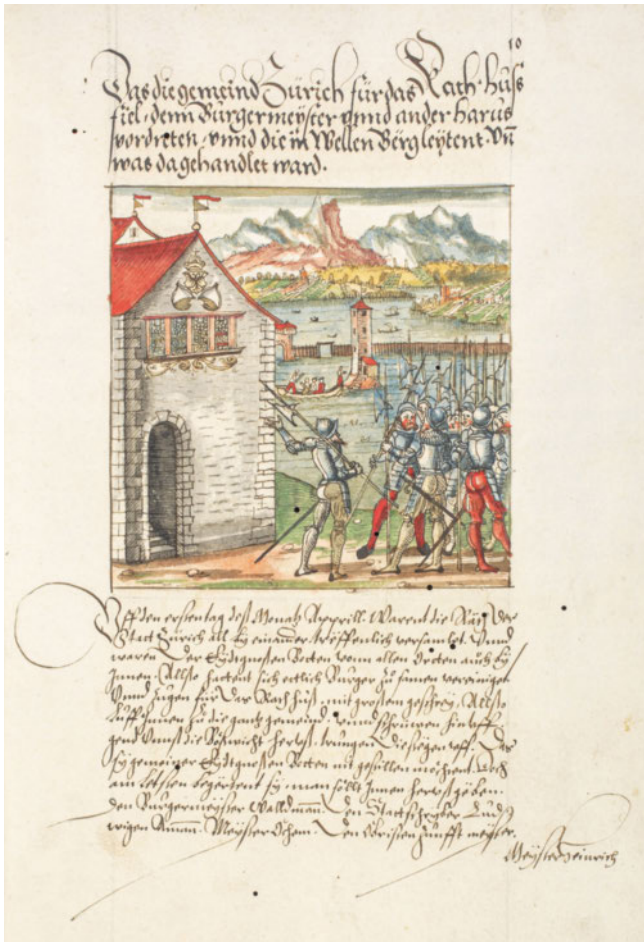 10
Das die gemeind Zürich für das Rath huß
fiel, denn Burgermeÿster vnnd ander harus
vordreten, vnnd die in Wellenberg leÿtent. Vn̄
was da gehandlet ward.
Vff den ersten tag deß Monatz Apprill. Warent die Räth der
Statt Zürich all bÿ einander treffenlich versamlet. Vnnd
waren der Eÿdtgnossen Botten vonn allen Orten auch bÿ
Innen. Allso hattent sich ettlich Burger zů samen vereiniget
Vnnd zugen für das Rath huß, mit grossem geschreÿ. Allso
luff Innen zů die gantz gemeind, vnnd schrüwen hinuff
gend vnns die Bößwicht herus.
bÿ gemeiner Eÿdtgnossen Botten nit gestillen möchtent. Doch
am letsten begertent sÿ, man söllt Innen herus geben.
den Burgermeÿster Walldman̄. Den Stattschrÿber Lud,
wigen Amman. Meÿster Den Obristen Zunfft meÿster.
Meÿster Heinrich